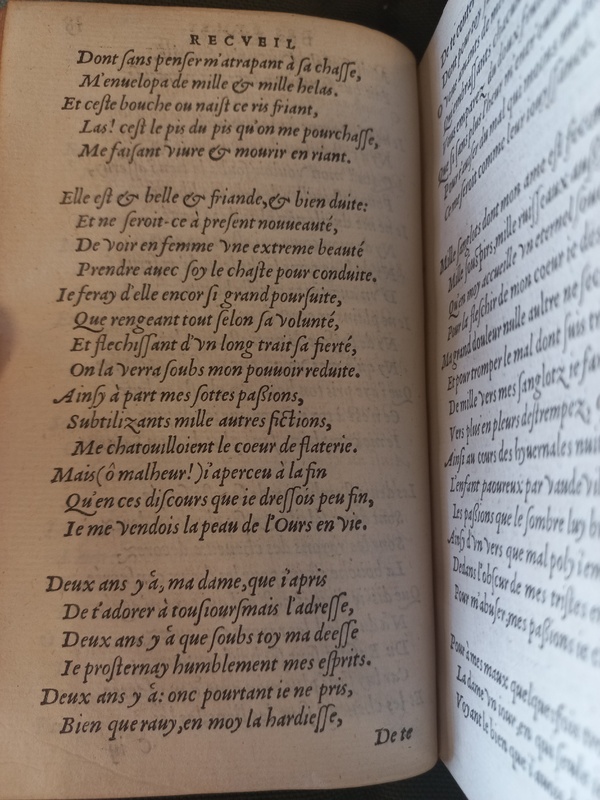 RECVEIL
Dont sans penser m'atrapant à sa chasse,
M'enuelopa de mille & mille helas.
Et ceste bouche ou naist ce ris friant,
Las! cest le pis du pis qu'on me pourchasse,
Me faisant viure & mourir en riant.
Elle est & belle & friande, & bien duite:
Et ne seroit-ce à present nouueauté,
De voir en femme vne extreme beauté
Prendre auec soy le chaste pour conduite.
Ie feray d'elle encor si grand poursuite,
Que rengeant tout selon sa volunté,
Et flechissant d'vn long trait sa fierté,
On la verra soubs mon pouuoir reduite.
Ainsy à part mes sottes passions,
Subtilizants mille autres fictions,
Me chatouilloient le coeur de flaterie.
Mais (ô malheur!) i'aperceu à la fin
Qu'en ces discours que ie dressois peu fin,
Ie me vendois la peau de l'Ours en vie.
Deux ans y á, ma dame, que i'apris
De t'adorer à tousioursmais l'adresse,
Deux ans y á que soubs toy ma deesse
Ie prosternay humblement mes esprits.
Deux ans y á: onc pourtant ie ne pris,
Bien que rauy, en moy la hardiesse,
De te
De te
Dont
O
Mille sanglots dont mon ame est
Mille souspirs, mille ruisseaux
Qu'en moy accueille vn eternel
Pour la fleschir de mon coeur ie
Ma grand douleur mille aultre ne
Et pour tromper le mal dont suis
De mille vers mes sanglotz ie
Vers plus en pleurs destrempez,
Ainsi au cours des hyuernales
L'enfant paoureux par vaude
Les passions que le sombre luy
Ainsy d'vn vers que mal poly
Dedans l'obscur de mes tristes
Pour m'abuser, mes passions
Pour à mes maux quelquesfois
La dame vn iour, en qui seule
Voyant le bien que l'amour